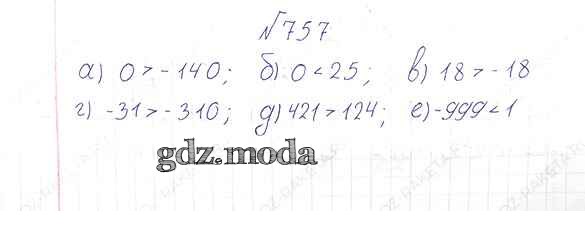 №757
а) 0 > -140; б) 0 < 25; в) 18 > -18
г) -31 > -310; д) 421 > 124; е) -999 < 1
gdz.moda